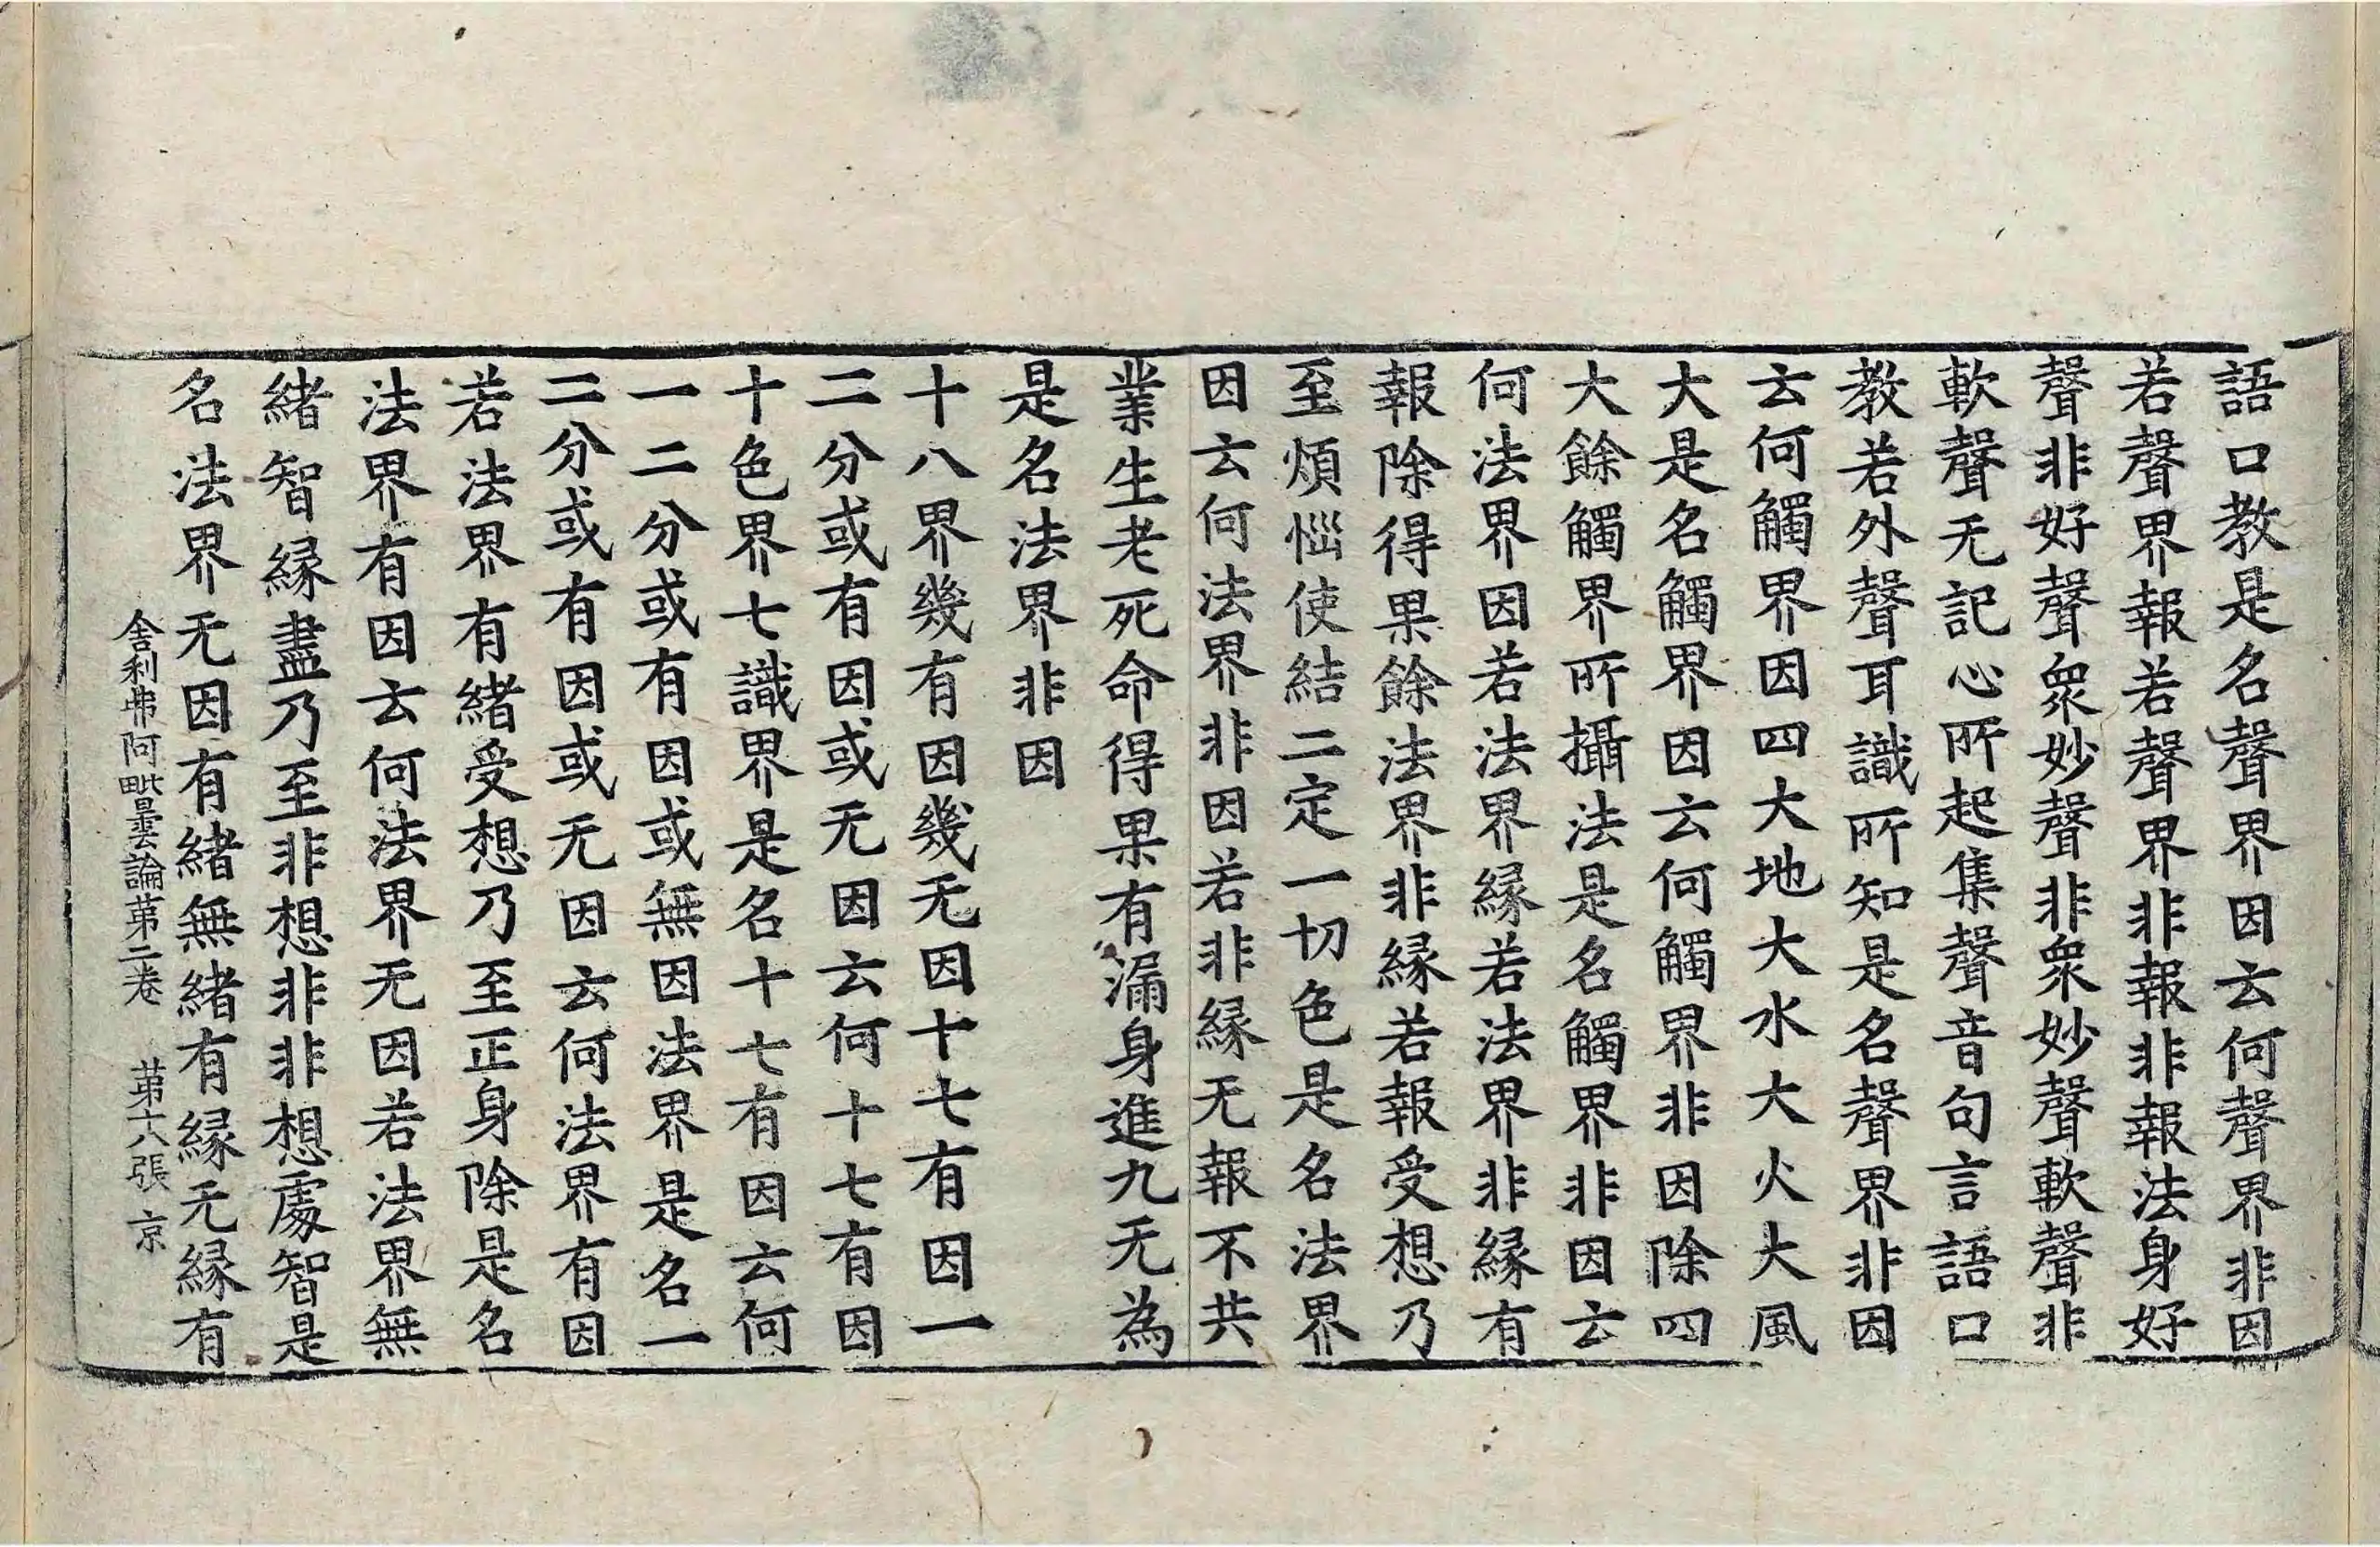 語口教是名聲界因云何聲界非因
若聲界報若聲界非報非報法身好
聲非好聲衆妙聲非衆妙聲軟聲非
軟聲无記心所起集聲音句言語口
教若外聲耳識所知是名聲界非因
云何觸界因四大地大水大火大風
大是名觸界因云何觸界非因除四
大餘觸界所攝法是名觸界非因云
何法界因若法界緣若法界非緣有
報除得果餘法界非緣若報受想乃
至煩惱使結二定一切色是名法界
因云何法界非因若非緣无報不共
業生老死命得果有漏身進九无為
是名法界非因
十八界幾有因幾无因十七有因一
二分或有因或无因云何十七有因
十色界七識界是名十七有因云何
一二分或有因或無因法界是名一
二分或有因或无因云何法界有因
若法界有緒受想乃至正身除是名
法界有因云何法界无因若法界無
緒智緣盡乃至非想非非想處智是
名法界无因有緒無緒有緣无緣有
舍利弗阿毗曇論第二卷 第十六張 京